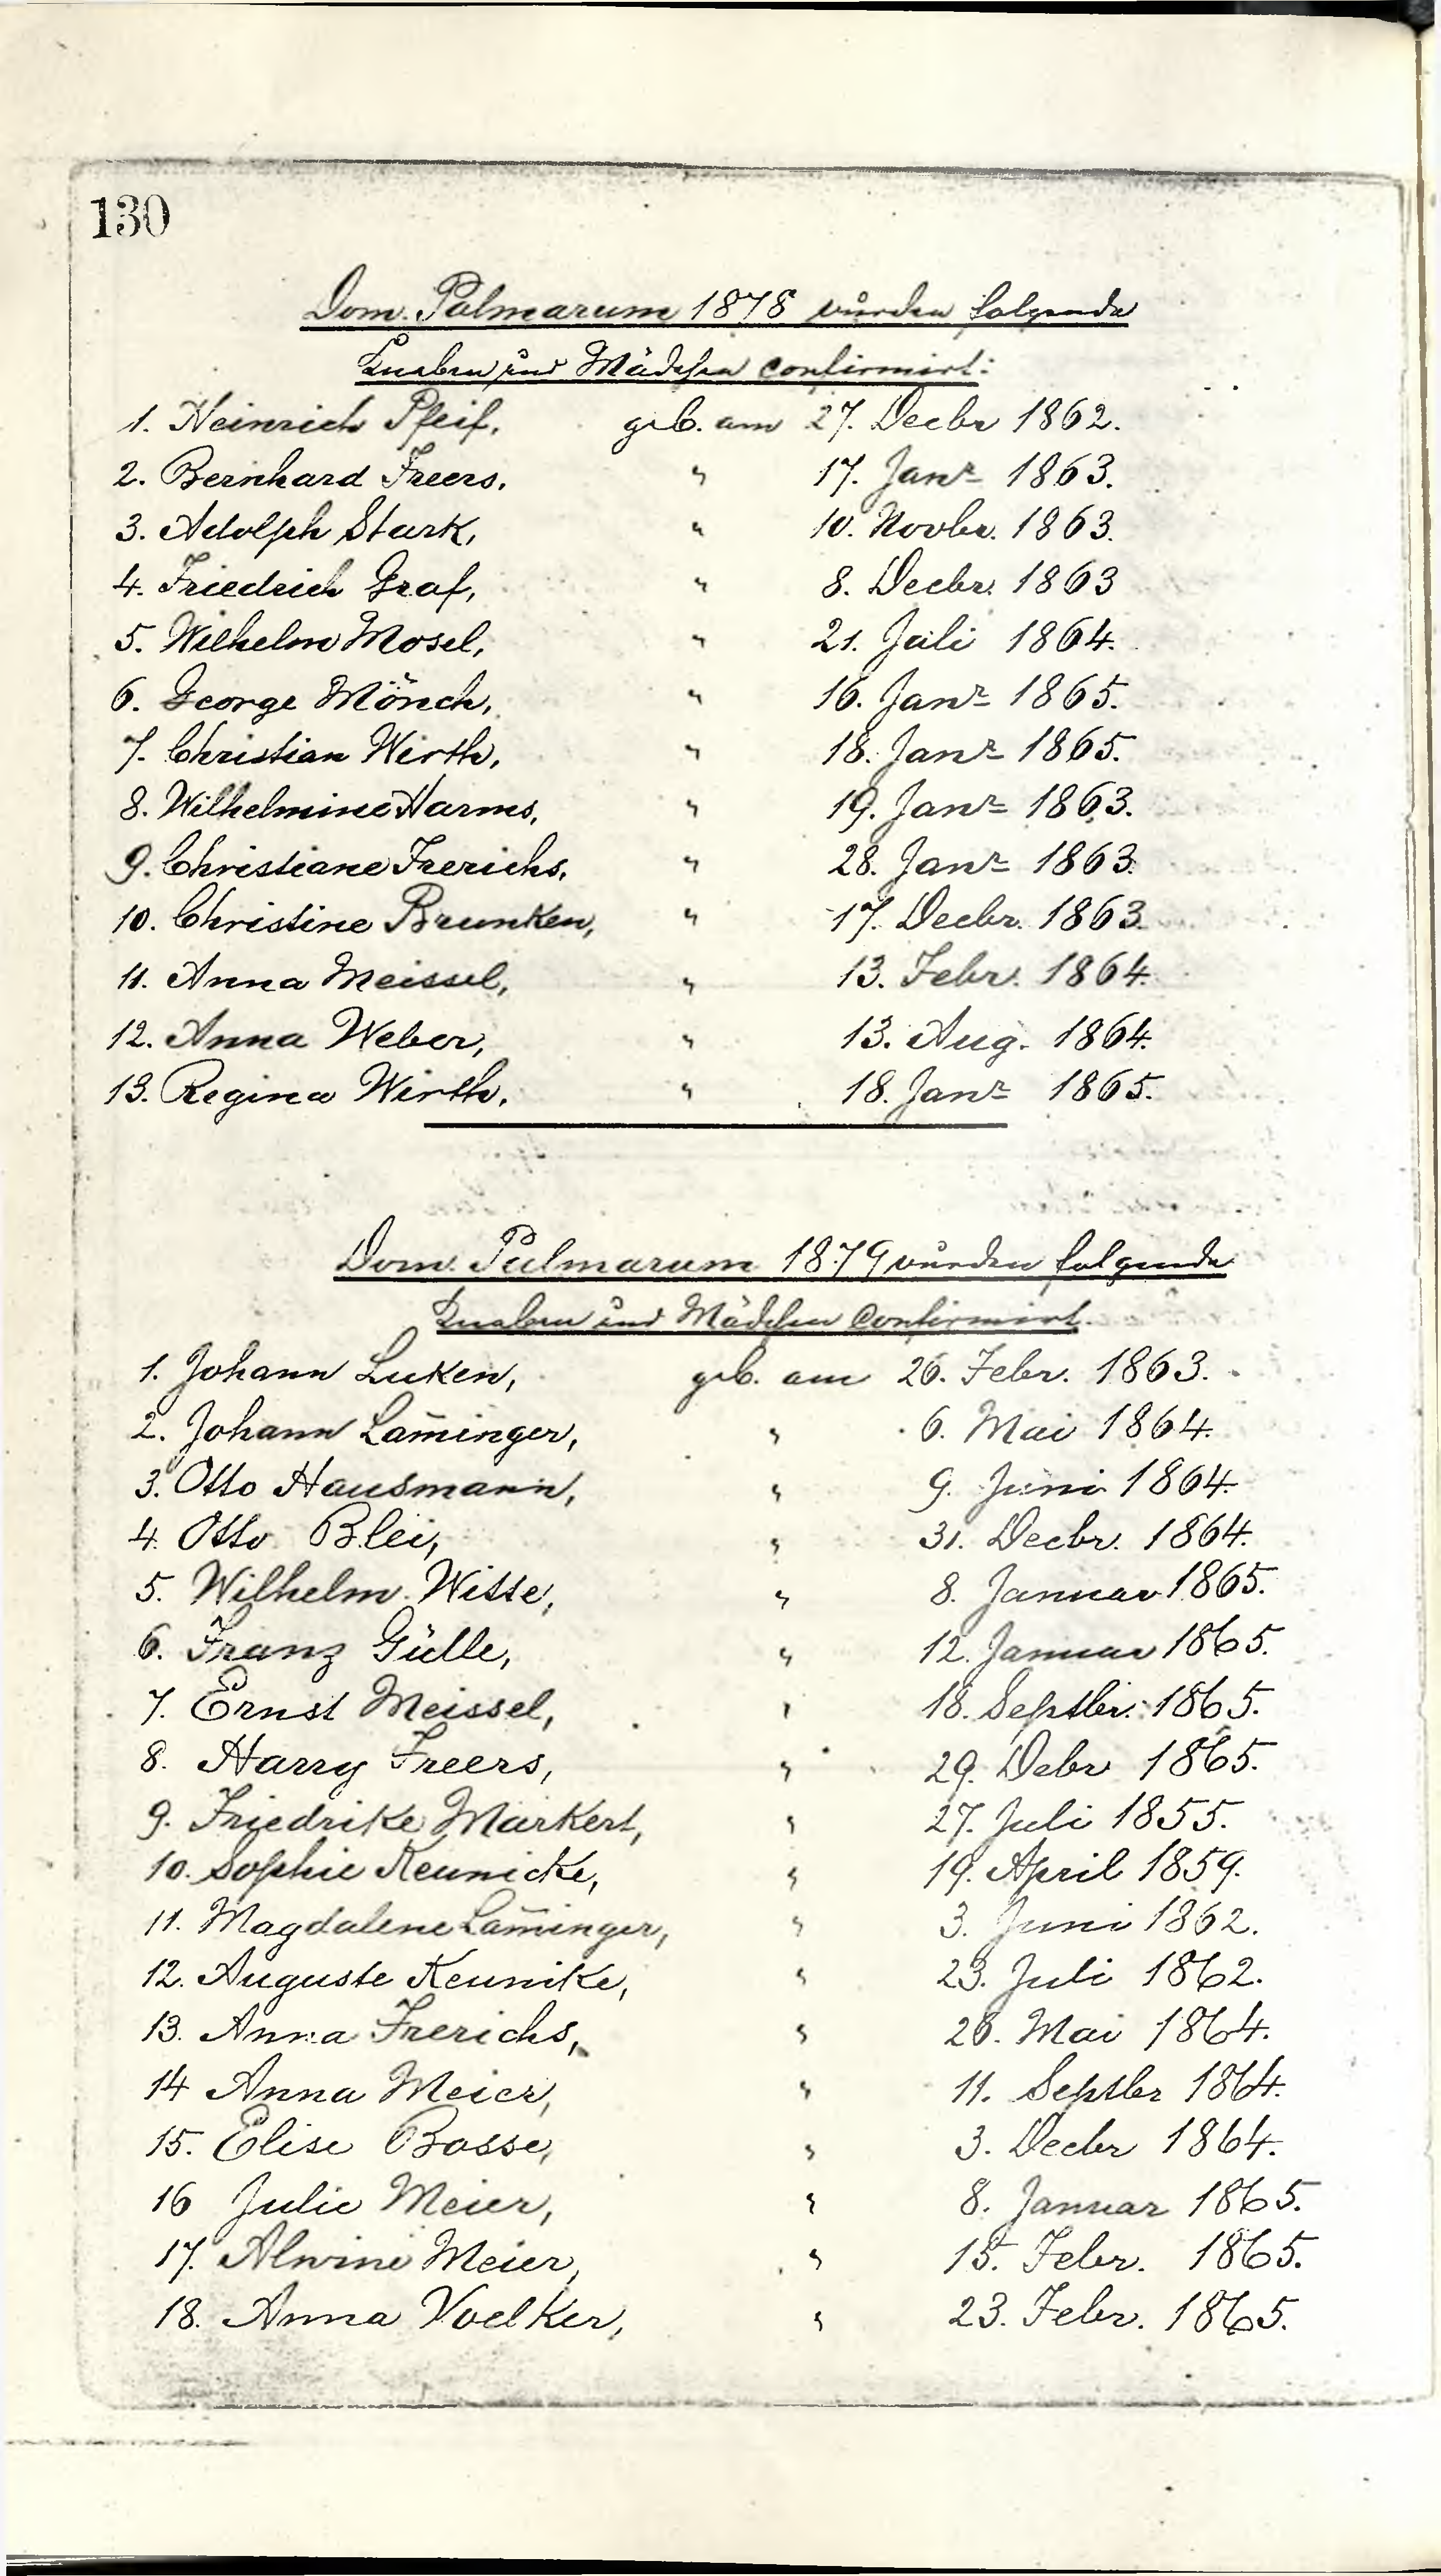 130
Dom. Palmarum 1878 wurden folgende
Knaben und Mädchen confirmirt:
1. Heinrich Pfeif, geb. am 27. Decbr 1862.
2. Bernhard Freers, " 17. Janr 1863.
3. Adolph Stark, " 10. Novbr. 1863.
4. Friedrich Graf, " 8. Decbr. 1863
5. Wilhelm Mosel, " 21. Juli 1864.
6. George Mönch, " 16. Janr 1865.
7. Christian Wirth, " 18. Janr 1865.
8. Wilhelmine Harms, " 19. Janr 1863.
9. Christiane Frerichs, " 28. Janr 1863.
10. Christine Brunken, " 17. Decbr. 1863.
11. Anna Meissel, " 13. Febr. 1864.
12. Anna Weber, " 13. Aug. 1864.
13. Regina Wirth, " 18. Janr 1865.
Dom. Palmarum 1879 wurden folgende
Knaben und Mädchen confirmirt.
1. Johann Luken, geb. am 26. Febr. 1863.
2. Johann Lam̄inger, " 6. Mai 1864.
3. Otto Hausmann, " 9. Juni 1864.
4. Otto Blei, " 31. Decbr. 1864.
5. Wilhelm Witte, " 8. Januar 1865.
6. Franz Gülle, " 12. Januar 1865.
7. Ernst Meissel, " 18. Septbr. 1865.
8. Harry Freers, " 29. Debr 1865.
9. Friedrike Markert, " 27. Juli 1855.
10. Sophie Keunicke, " 19. April 1859.
11. Magdalene Lam̄inger, " 3. Juni 1862.
12. Auguste Keunike, " 23. Juli 1862.
13. Anna Frerichs, " 26. Mai 1864.
14 Anna Meier, " 11. Septbr 1864.
15. Elise Bosse, " 3. Decbr 1864.
16 Julie Meier, " 8. Januar 1865.
17. Alwine Meier, " 15. Febr. 1865.
18. Anna Voelker, " 23. Febr. 1865.